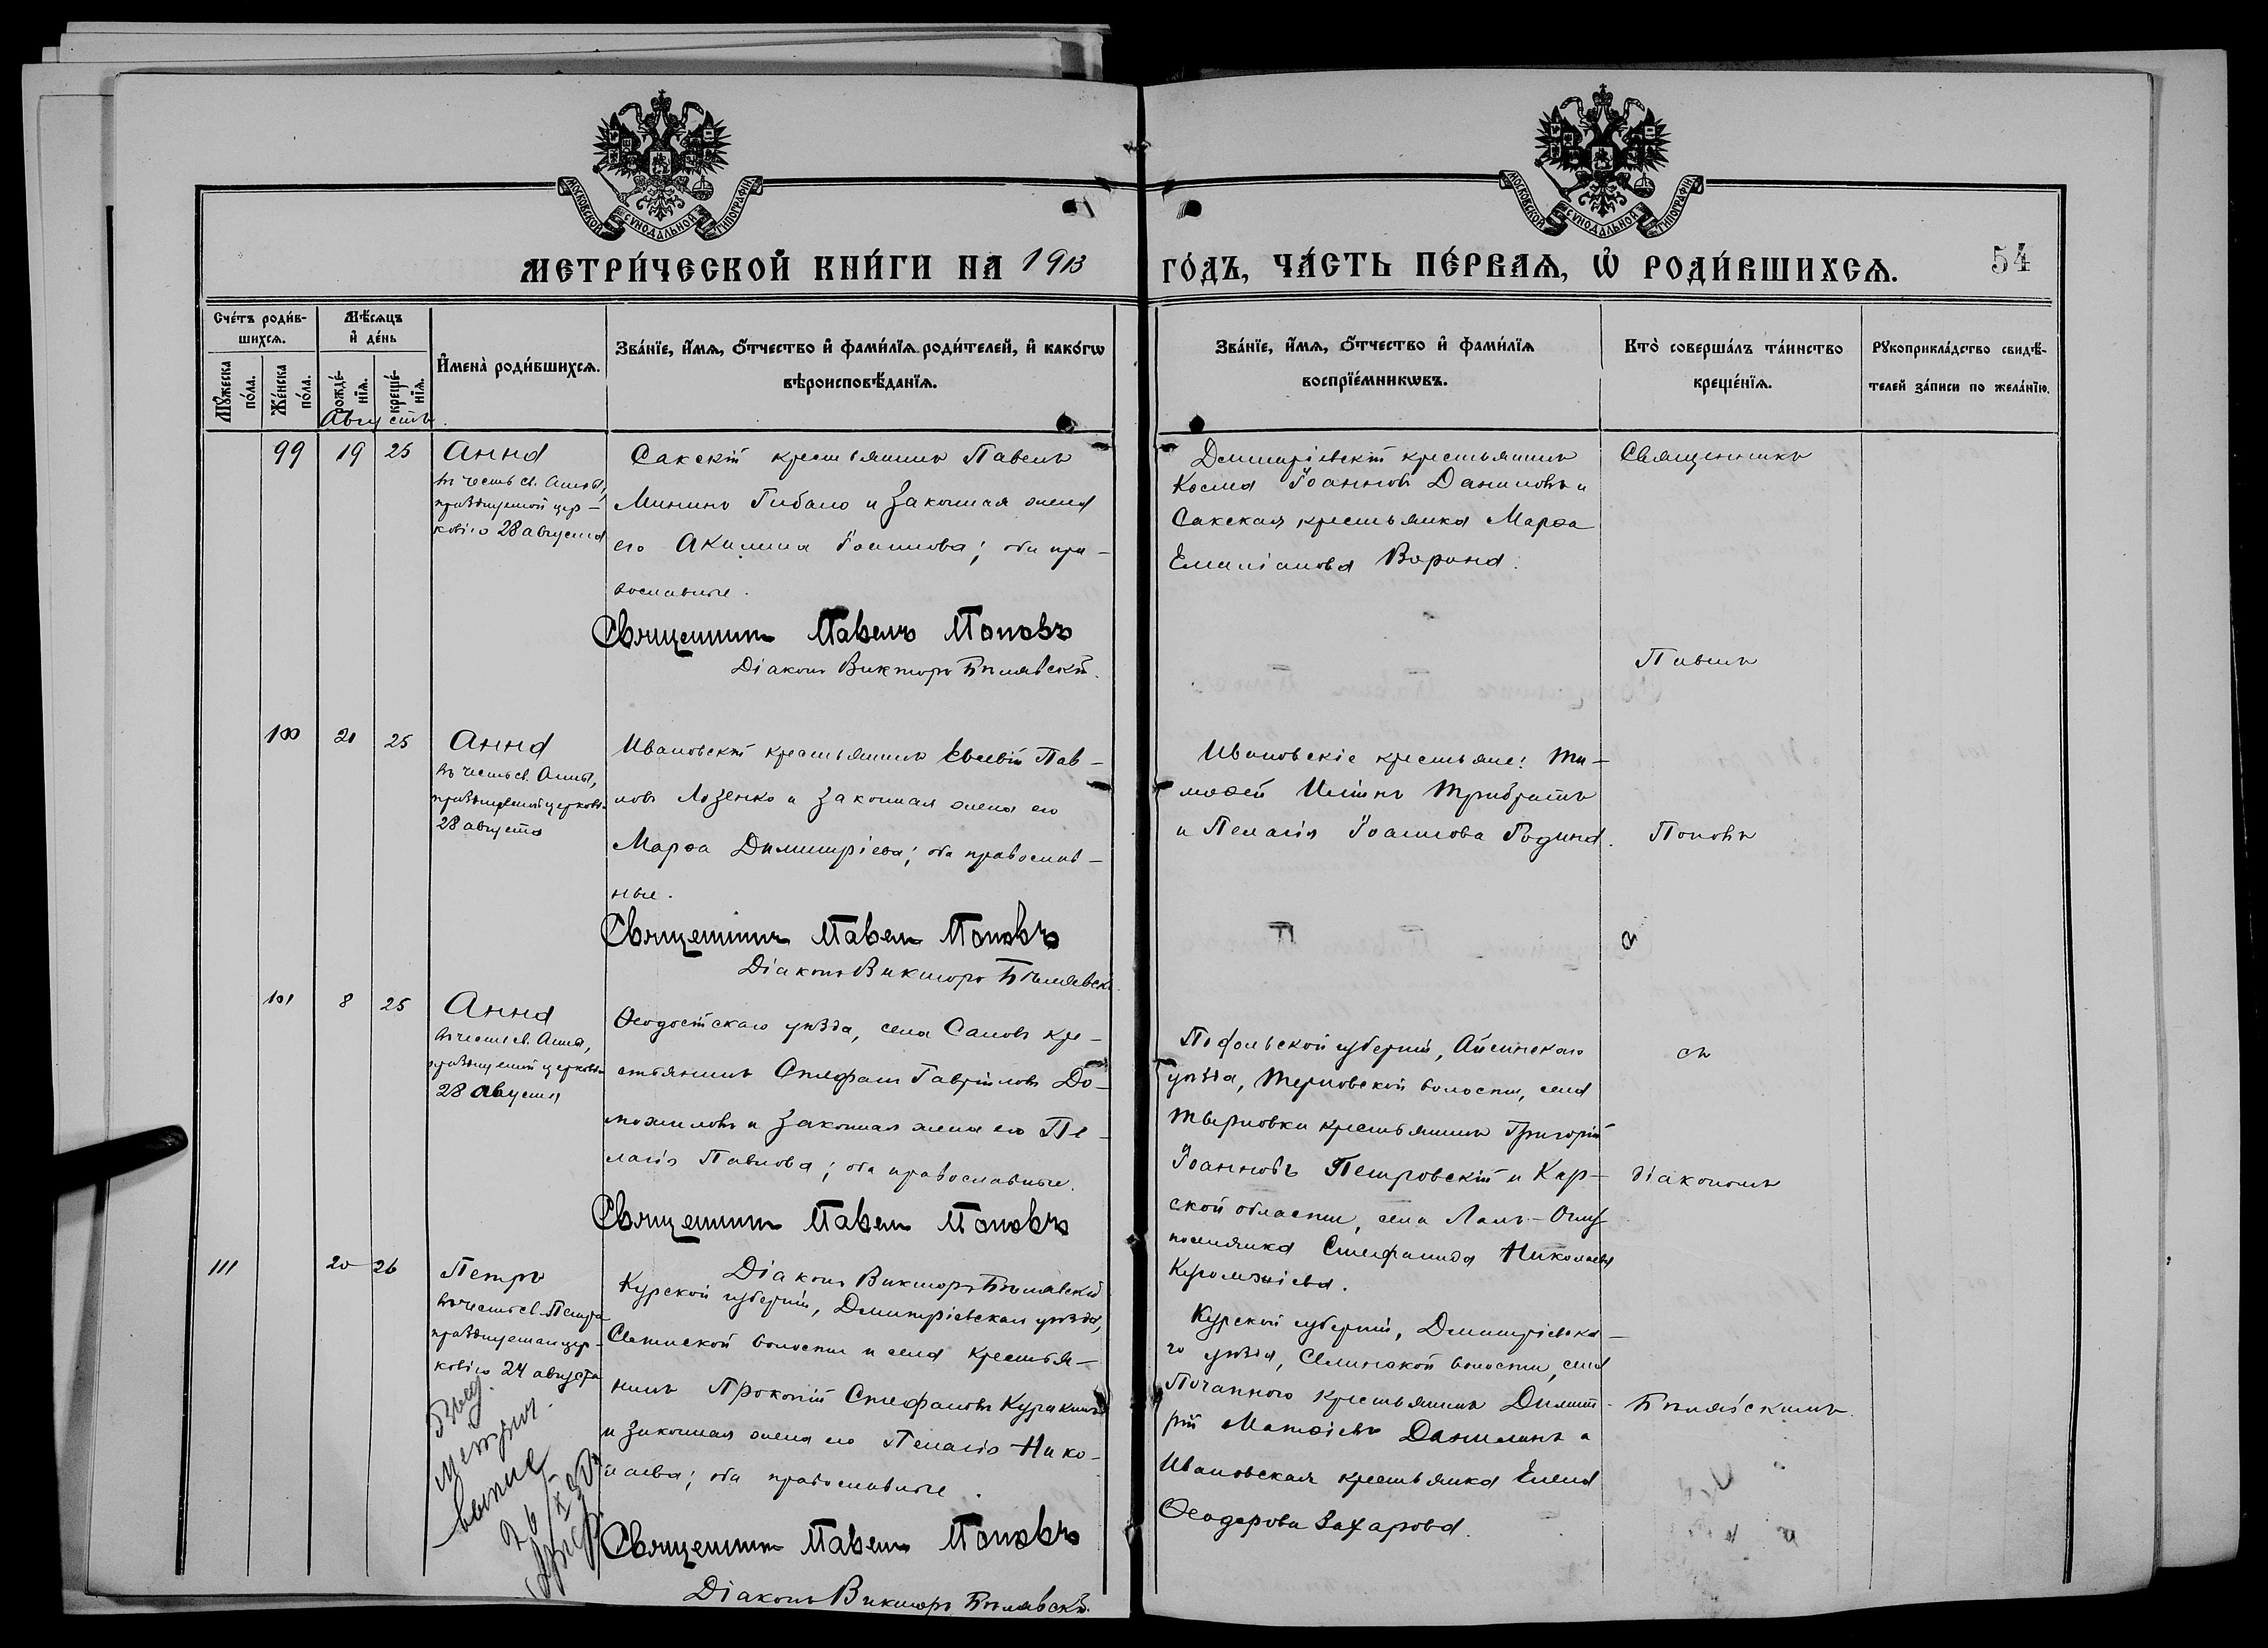 МОСКОВСКОЙ СѴНОДАЛЬНОЙ ТИПОГРАФІИ
МОСКОВСКОЙ СѴНОДАЛЬНОЙ ТИПОГРАФІИ
МЕТРИ́ЧЕСКОЙ КНИ́ГИ НА 1913
ГО́ДЪ, ЧА́СТЬ ПЕ́РВАѦ, Ѡ РОДИ́ВШИХСѦ.
54
Сче́тъ роди́в-
шихсѧ.
Мꙋ́жеска по́ла.
Же́нска по́ла.
Мѣ́сѧцъ
и де́нь
рожде́-
нїѧ.
креще́-
нїѧ.
Августъ.
Имена̀ роди́вшихсѧ.
Зва́нїе, и́мѧ, ѻ́тчество и фами́лїѧ роди́телей, и како́гѡ
вѣроисповѣ́данїѧ.
Зва́нїе, и́мѧ, ѻ́тчество и фами́лїѧ
воспрїе́мникѡвъ.
Кто̀ соверша́лъ та́инство
креще́нїѧ.
Рꙋкоприкла́дство свидѣ́-
телей за́писи по жела́нїю.
99 19 25
Анна
въ честь св. Анны,
празднуемой цер-
ковію 28 августа
Сакскій крестьянинъ Павелъ
Мининъ Гибало и законная жена
его Акилина Іоаннова; оба пра-
вославные.
Священникъ Павелъ Поповъ
Діаконъ Викторъ Бѣлявскій.
Димитріевскій крестьянинъ
Косма Іоанновъ Даниловъ и
Сакская крестьянка Марѳа
Емиліанова Ворона.
Священникъ
Павелъ
Поповъ
съ
діакономъ
Бѣлявскимъ.
100 21 25
Анна
въ честь св. Анны,
празднуемой церковію
28 августа
Ивановскій крестьянинъ Евсевій Пав-
ловъ Лозенко и законная жена его
Марѳа Димитріева; оба православ-
ные.
Священникъ Павелъ Поповъ
Діаконъ Викторъ Бѣлявскій.
Ивановскіе крестьяне: Ти-
моѳей Трибратъ
и Пелагія Іоаннова Година.
101 8 25
Анна
въ честь св. Анны,
празднуемой церковію
28 августа
Ѳеодосійскаго уѣзда, села Саловъ кре-
стьянинъ Стефанъ Гавріиловъ До-
можиловъ и законная жена его Пе-
лагія Павлова; оба православные.
Священникъ Павелъ Поповъ
Діаконъ Викторъ Бѣлявскій
Подольской губерніи,
уѣзда, Терновской волости, села
Тырновки крестьянинъ Григорій
Іоанновъ Петровскій и Кар-
ской области, села
поселянка Стефанида Николаева
111 20 26
Петръ
въ честь св. Петра
празднуемаго цер-
ковію 24 августа
Выд.
метрич.
выпис
26/IX
Курской губерніи, Димитріевскаго уѣзда,
волости и села крестья-
нинъ Прокопій Стефановъ Куракинъ
и законная жена его Пелагія Нико-
лаева; оба православные.
Священникъ Павелъ Поповъ
Діаконъ Викторъ Бѣлявскій.
Курской губерніи, Димитріевска-
го уѣзда, волости, села
крестьянинъ Димит-
рій Матѳіевъ Данилинъ и
Ивановская крестьянка Елена
Ѳеодорова Захарова.